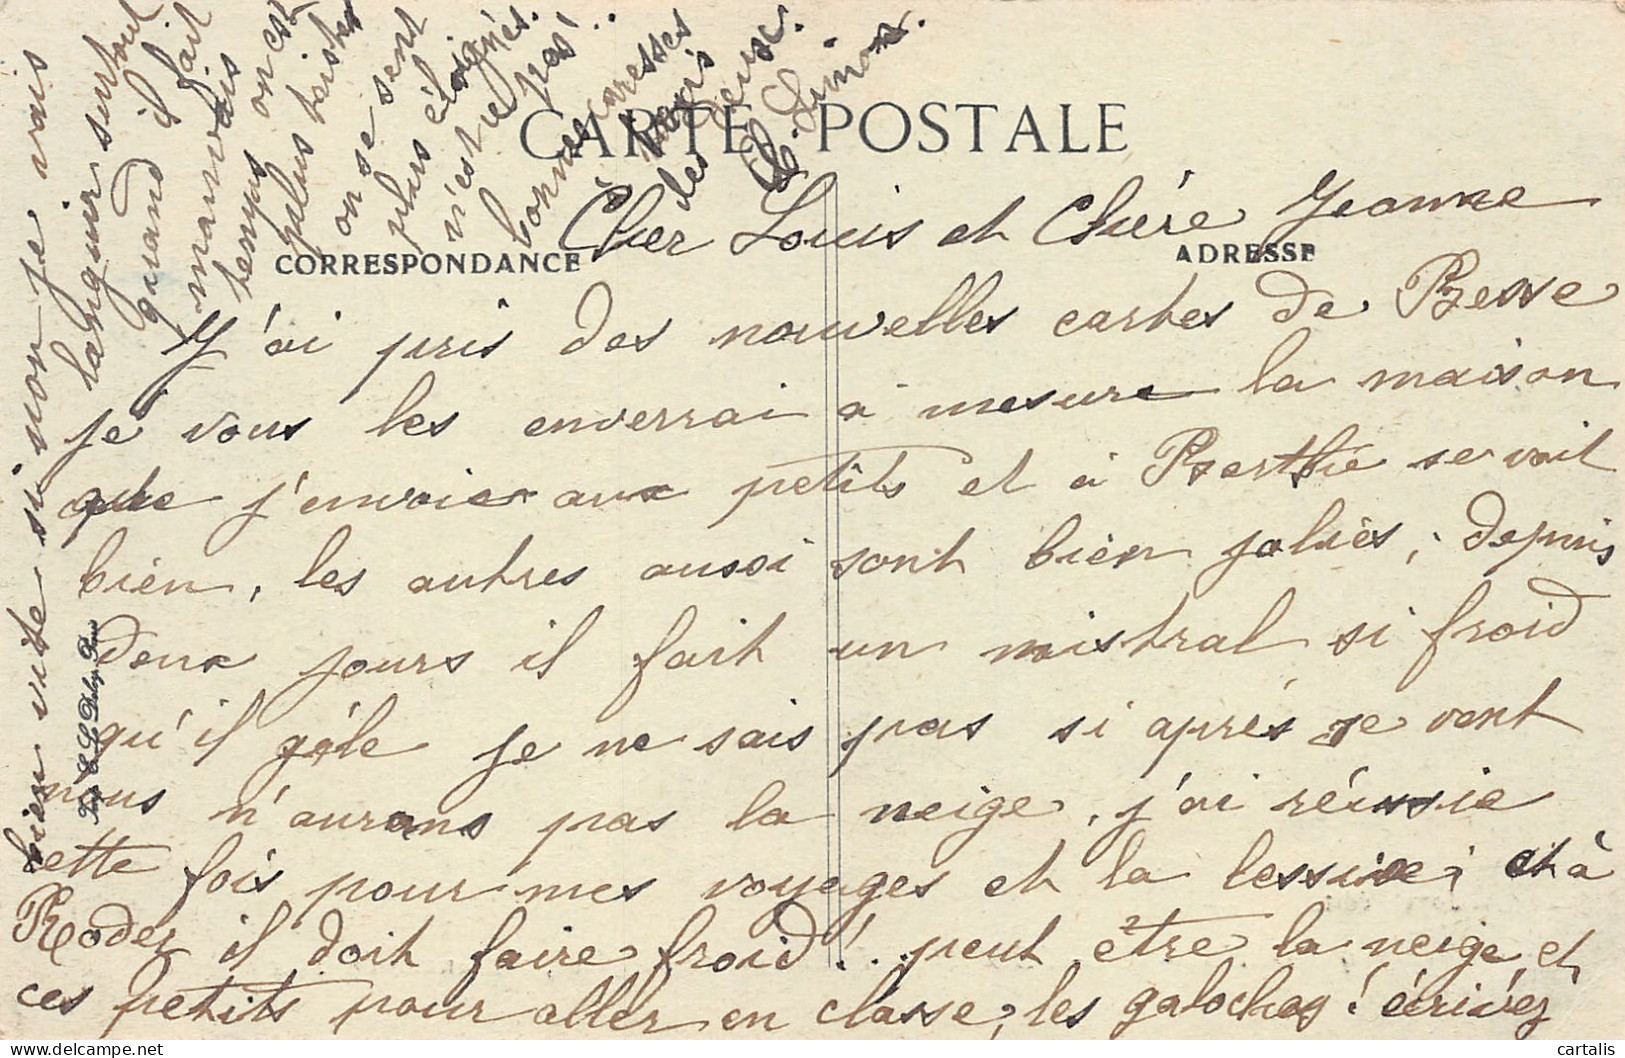 CARTE POSTALE
CORRESPONDANCE
ADRESSE
Cher Louis et Chère Jeanne
J'ai pris des nouvelles cartes de Besse
je vous les enverrai à mesure la maison
que j'envoie aux petits et à Berthe se voit
bien, les autres aussi sont bien jolies, depuis
deux jours il fait un mistral si froid
qu'il gèle je ne sais pas si après se vent
nous n'aurons pas la neige, j'ai réussie
cette fois pour mes voyages et la lessive; et à
Rodez il doit faire froid!.. peut être la neige et
ces petits pour aller en classe, les galoches! écrivez
bien vite si non je vais
languir surtout
quand il fait
mauvais
temps on est
plus triste
on se sent
plus éloignés.
n'est ce pas!..
bonne caresses
à vous
les deux.
L. Simon.
cartalis